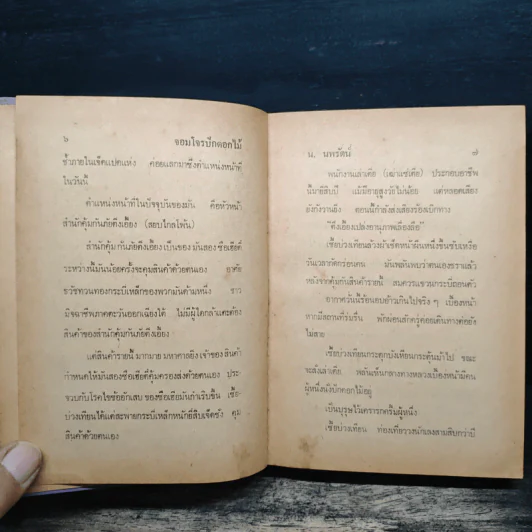 ๖
จอมโจรปักดอกไม้
ช้ำภายในเจ็ดแปดแห่ง ค่อยแลกมาซึ่งตำแหน่งหน้าที่
ในวันนี้
ตำแหน่งหน้าที่ในปัจจุบันของมัน คือหัวหน้า
สำนักคุ้มกันภัยตึงเอี้ยง
สำนักคุ้มกันภัยตึงเอี้ยง เป็นของ มันสอง
ระหว่างนี้มันน้อยครั้งจะคุมสินค้าด้วยตนเอง อาศัย
ธวัชทวนทองกระบี่เหล็กของพวกมันค้ามหนึ่ง ชาว
มิจฉาชีพภาคตะวันออกเฉียงใต้ ไม่มีผู้ใดกล้าแตะต้อง
สินค้าของสำนักคุ้มกันภัยตึงเอี้ยง
แต่สินค้ารายนี้ มากมาย มหาศาลยิ่ง เจ้าของ สินค้า
กำหนดให้มันสอง คุ้มครองส่งด้วยตนเอง ประ
จวบกับโรคไขข้ออักเสบ ของ กำเริบขึ้น
บ้วงเทียนได้แต่สะพายกระบี่เหล็กหนักยี่สิบเจ็ดชั่ง คุม
สินค้าด้วยตนเอง
น. นพรัตน์
๗
พนักงาน ประกอบอาชีพ
นี้มายี่สิบปี แม้มีอายุสูงวัยไม่น้อย แต่หลอดเสียง
ยังกังวานยิ่ง ตอนนี้กำลังส่งเสียงร้องเบิกทาง
บ้วงเทียนล้วงผ้าเช็ดหน้าผืนหนึ่งขึ้นซับเหงื่อ
วันเวลากัดกร่อนคน มันพลันพบว่าตนเองชราแล้ว
หลังจากคุ้มกันสินค้ารายนี้ สมควรแขวนกระบี่ถอนตัว
อากาศวันนี้ร้อนอบอ้าวเกินไปจริง ๆ เบื้องหน้า
หากมีสถานที่ร่มรื่น พักผ่อนสักครู่ค่อยเดินทางต่อยัง
ไม่สาย
บ้วงเทียนกระตุกบังเหียนกระตุ้นม้าไป ขณะ
จะสั่ง พลันเห็นกลางทางหลวงเบื้องหน้ามีคน
ผู้หนึ่งนั่งปักดอกไม้อยู่
เป็นบุรุษไว้เคราครกครึ้มผู้หนึ่ง
บ้วงเทียน ท่องเที่ยววงนักเลงสามสิบกว่าปี